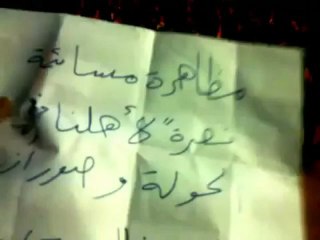 مظاهرة مسائية
نصرةً لأهلنا في
لحولة و حوران